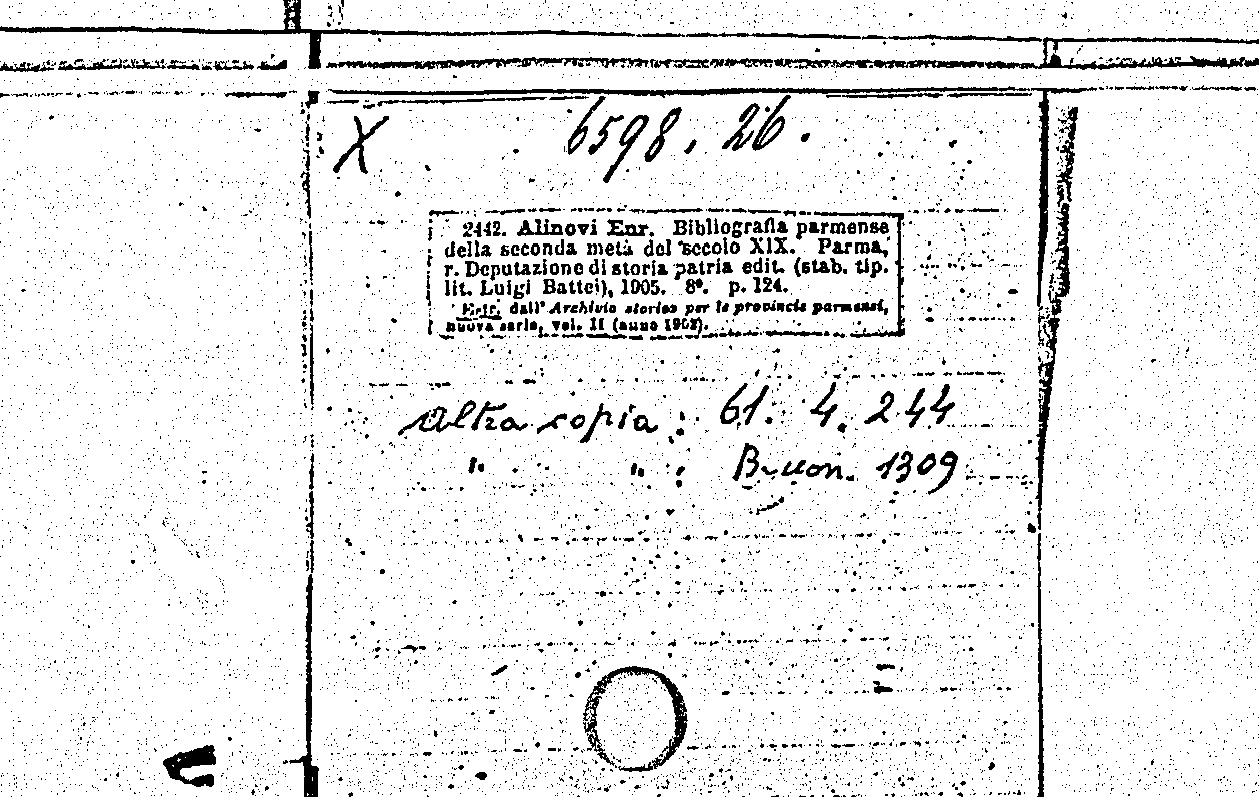 X 6598. 26.
2442. Alinovi Enr. Bibliografia parmense
della seconda metà del secolo XIX. Parma,
r. Deputazione di storia patria edit. (stab. tip.
lit. Luigi Battei), 1905. 8°. p. 124.
Estr. dall' Archivio storico per le provincie parmensi,
nuova serie, vol. II (anno 1902).
Altra copia : 61. 4. 244
" " : Buon. 1309